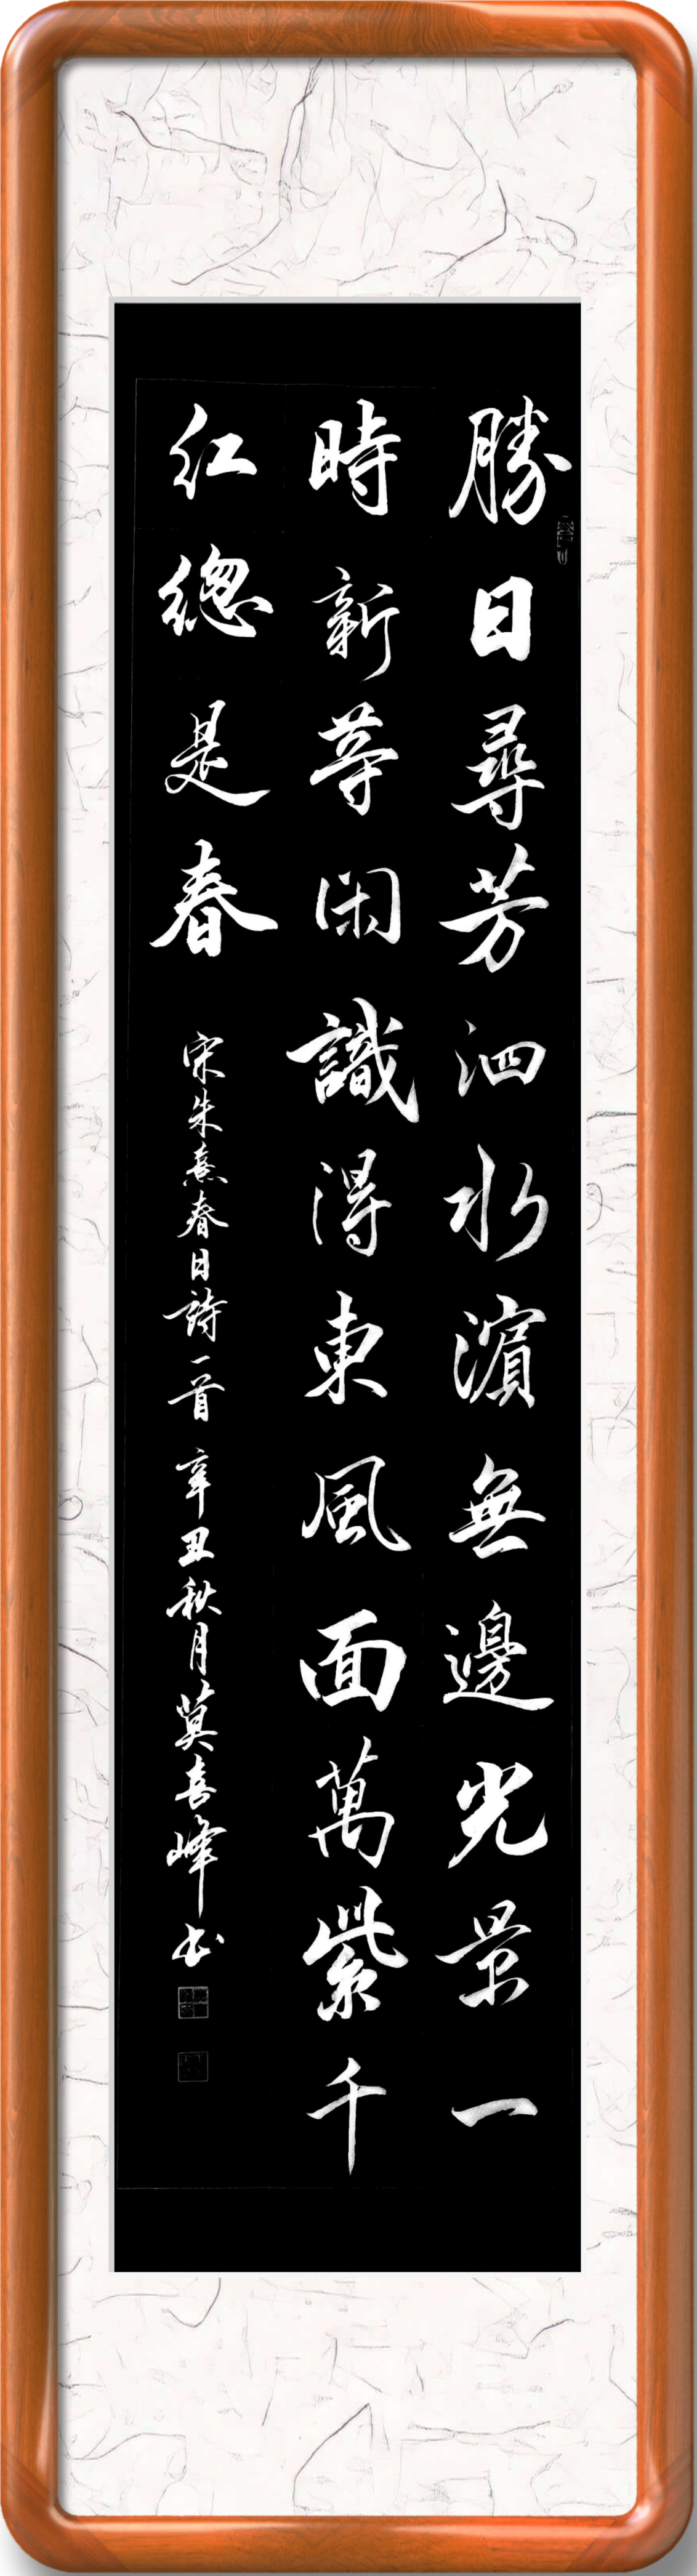 勝日尋芳泗水濵無邊光景一
時新等閑識得東風面萬紫千
紅總是春
宋朱熹春日詩一首 辛丑秋月莫喜峰书